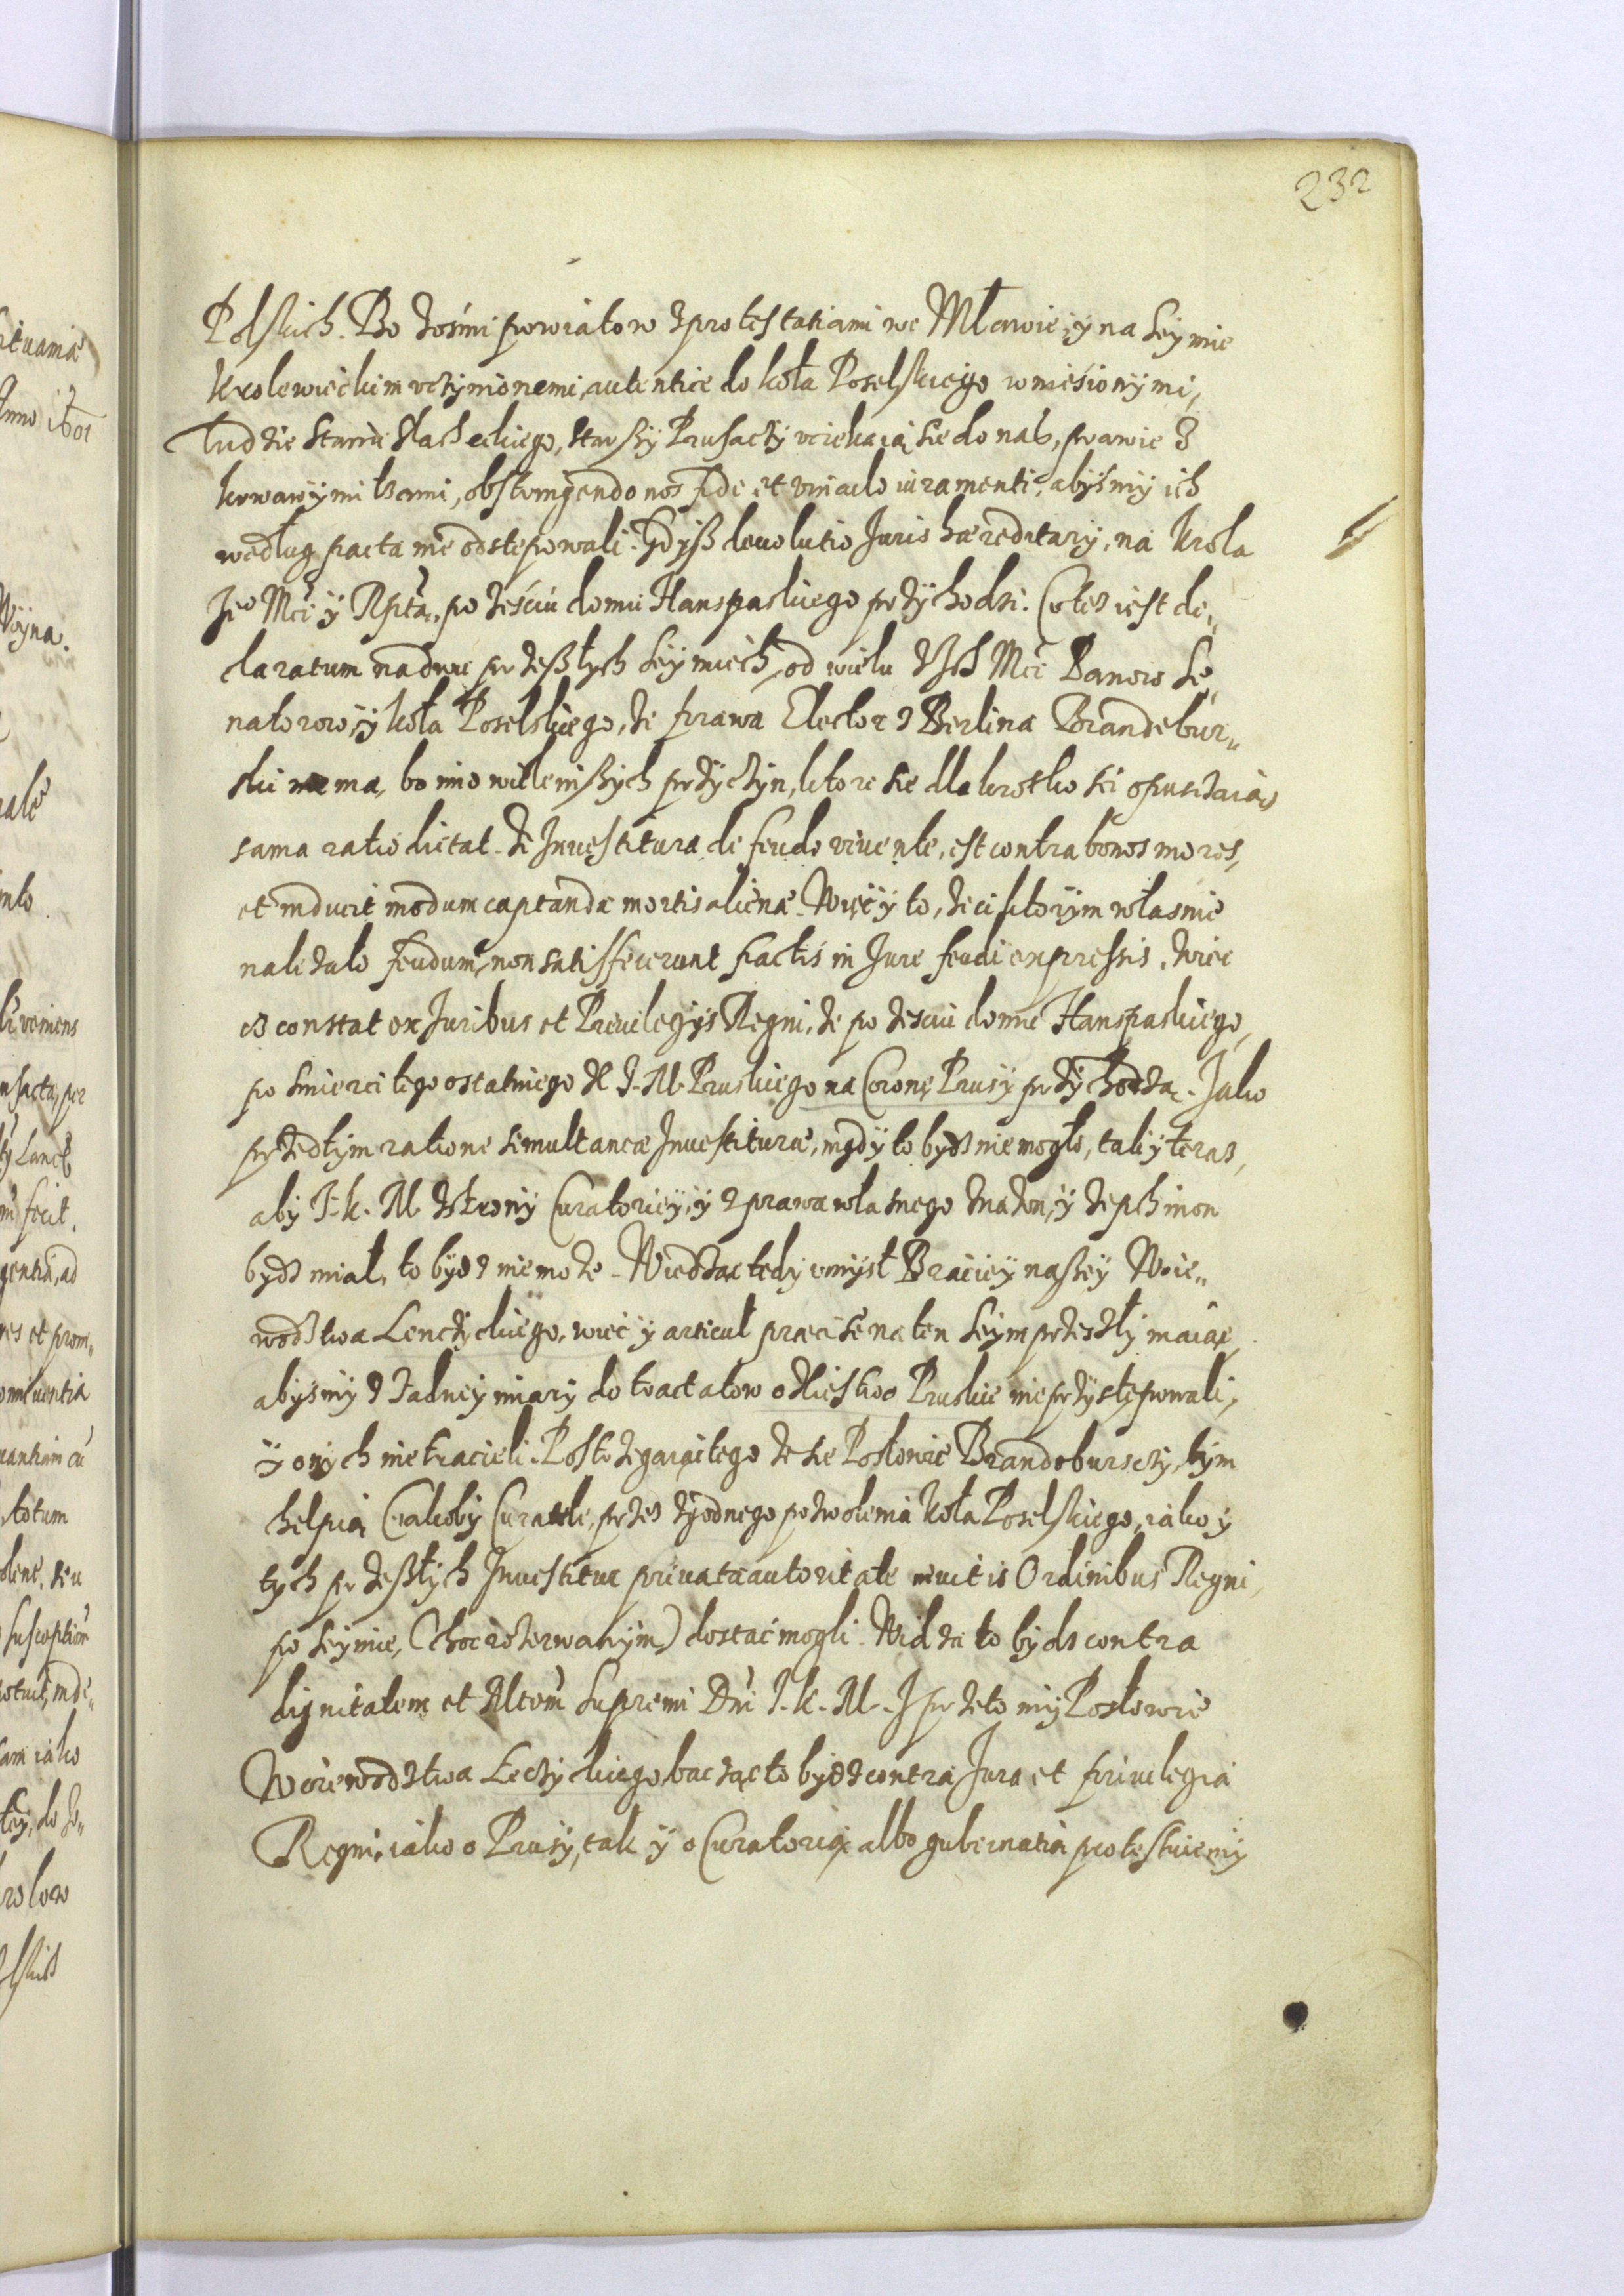 232
Polskich. Bo z ośmi powiatow z protestatiami we Mławie, y na Seymie
Krolewieckim vczynionemi, autentice do koła Poselskiego wniesionymi,
ludzie stanu slacheckiego, starszy Prusacy vciekaią sie do nas, prawie z
krwawymi łzami, obstringendo nos fide et vinculo iuramenti, abysmy ich
według pacta nie odstepowali. Gdysz deuolutio Juris haereditarij, na Krola
Jeo Mći y Rptą, po ześciu domu Hanspaskiego przychodzi. Co też iest de„
claratum na dwu przeszłych Seymiech, od wielu z Ich Mći Panow Se„
natorow, y koła Poselskiego, że prawa Elector z Berlina Brandebur„
ski nie ma, bo mimo wiele inszych przyczyn, ktore sie dla krotkosci opusczaią,
sama ratio dictat. że Inuestitura de feudo viuente, est contra bonos mores,
et inducit modum captandae mortis alienae. Więc y to, że ci ktorym własnie
należało feudum, non satisfecerunt pactis in Jure feudi expressis, wiec
constat ex Juribus et Priuilegijs Regni, że po zesciu domu Hanspaskiego,
po smierci tego ostatniego X J. M. Pruskiego na Coronę Prusy przychodzą. Jako
przedtym ratione simultaneae Inuestiturae, nigdy to bydź nie mogło, tak y teraz,
aby J. K. M. z strony Curatoriey, y z prawa własnego
bydź miał, to bydź nie może. Wiedząc tedy vmysł Braciey naszey Woie„
wodztwa Lenczyckiego, wiec y articuł praecise na ten Seym przeszły maiąc,
abysmy z żadney miary do tractatow o Xiestwo Pruskie nie przystępowali,
y onych nie tracili. Postrzegaiąc tego że sie Posłowie Brandeburscy, tym
chełpią jakoby Curatele, przez żadnego pozwolenia koła Poselskiego, iako y
tych przeszłych Inuestitur priuata autoritate inuitis Ordinibus Regni,
po Seymie, (choc rozerwanym) dostać mogli. Widzą to bydz contra
dignitatem et Altom Supremi Dni J. K. M. J przeto my Posłowie
Woiewodztwa Łeczyckiego, bacząc to bydz contra Jura et priuilegia
Regni, iako o Prusy, tak y o Curatorią albo gubernatią protestuiemy